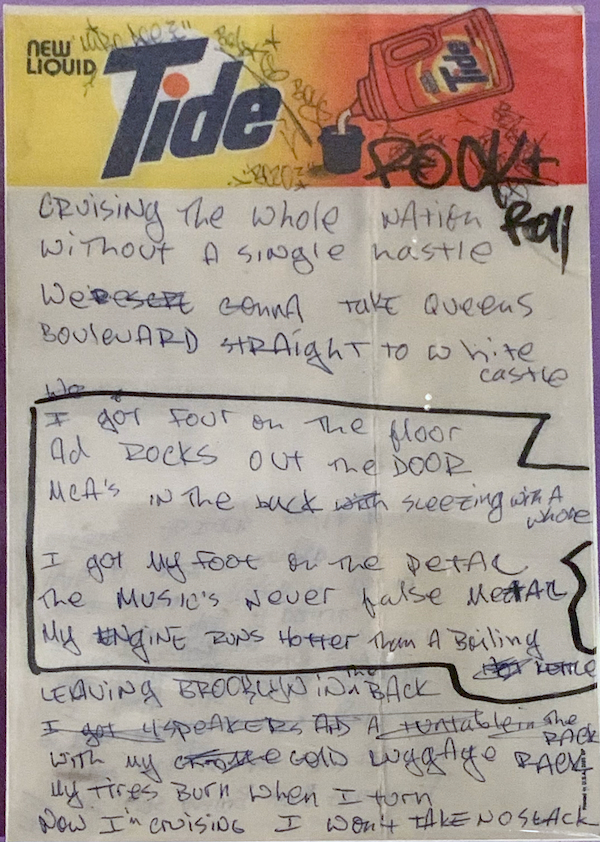 NEW
LIQUID
Tide
Tide
ROCK +
Roll
CRUISING The whole NATION
WiThouT A single hastle
We gonna TAKE Queens
BOULEVARD STRAIGHT TO white
castle
We
I got Four on The floor
Ad ROCKS OUT The DOOR
MCA's iN The back with sleezing with A
whore
I got My Foot on The PeTAL
The MUSIC'S Never false MeTAL
My ENgiNE RUNS HOTTer Than A Boiling
KeTTLe
LEAVING BROOKLYN iN the BACK
I got 4 speakers AND A turntable in The
BACK
With my GOLD Luggage RACK
My Tires Burn when I turn
Now I'm cruising I won't TAKE NO SLACK